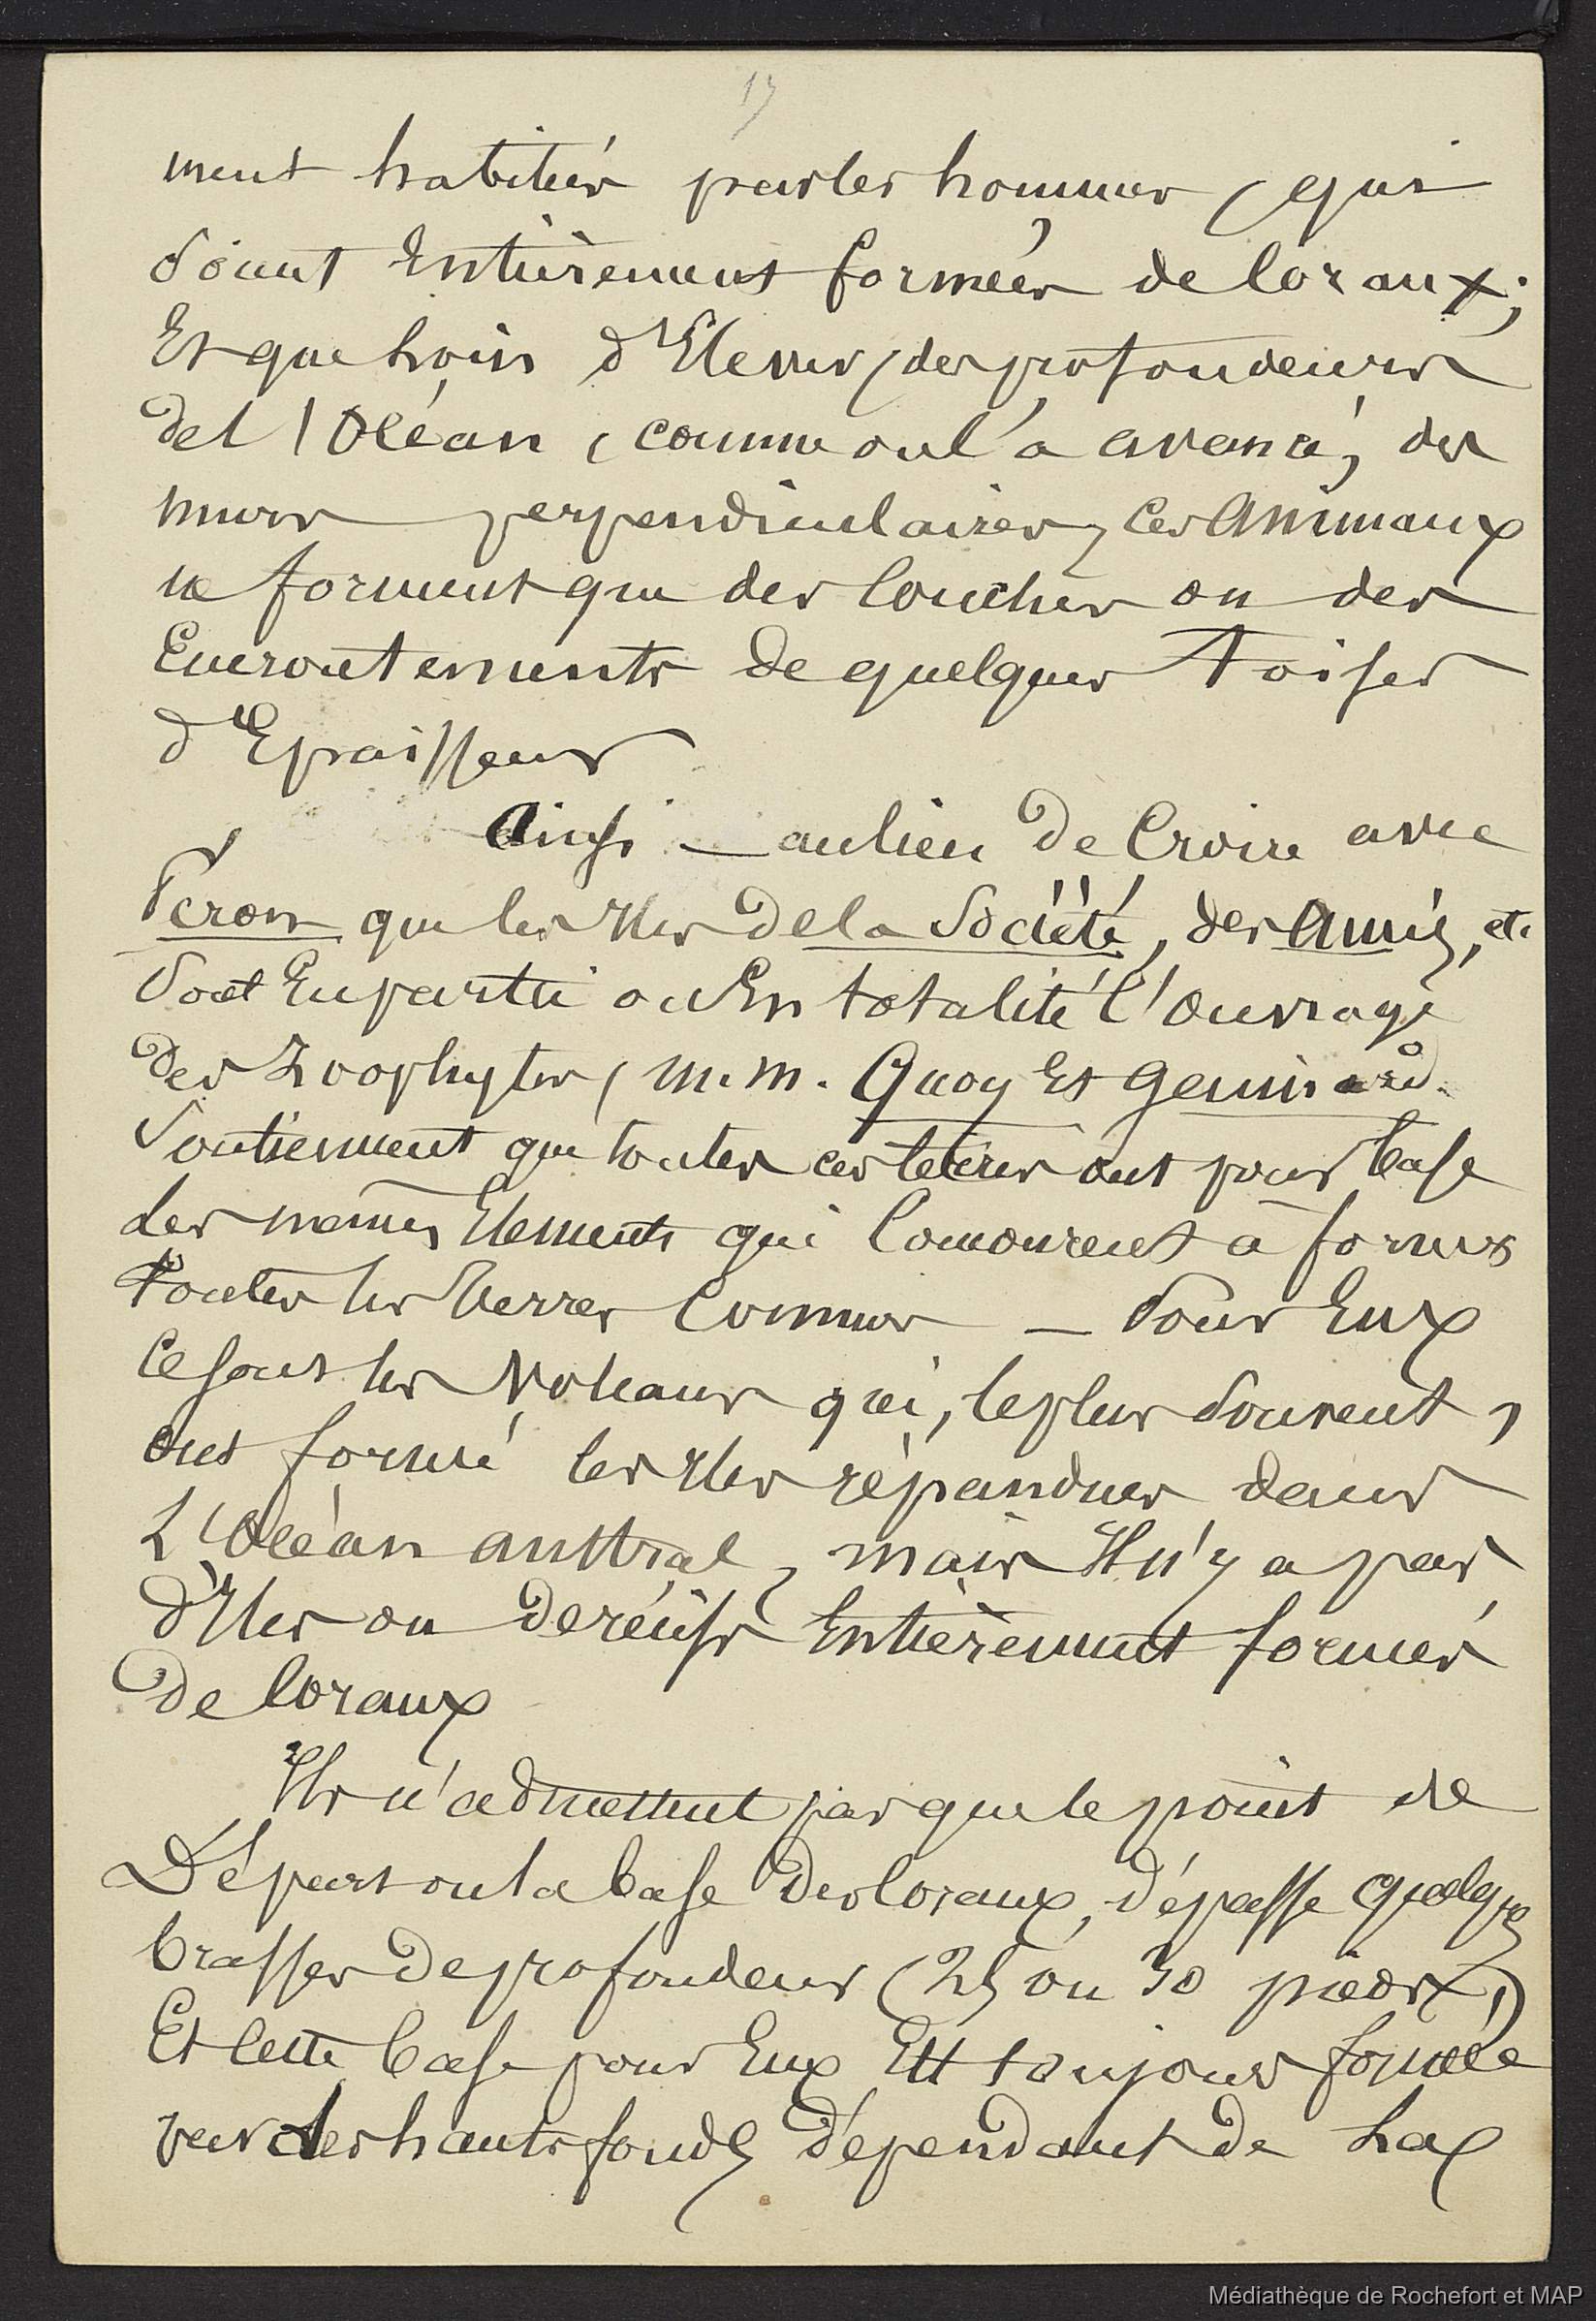 19
ment habitées par les hommes, qui
soient Entièrement formées de Coraux;
Et que Loin d'Elever, des profondeurs
del l'Océan, comme on l'a avancé, des
murs perpendiculaires, Ces Animaux
ne forment que des Couches ou des
Encroutements de quelques toises
d'Epaisseur
Ainsi — au lieu de Croire avec
Péron que les Iles de la Société, des Amis, etc
Sont En partie ou En totalité l'ouvrage
des Zoophytes, M.M. Quoy Et Gaimard
Soutiennent que toutes ces terres ont pour base
les mêmes Eléments qui Concourent à former
toutes les terres Connues — Pour Eux
Ce sont les Volcans qui, le plus Souvent,
ont formé les Iles répandues dans
L'Océan austral, mais Il n'y a pas
d'Iles ou de récifs Entièrement formés
de Coraux
Ils n'admettent pas que le point de
Départ ou la base des Coraux, dépasse quelqes
brasses de profondeur (25 ou 30 pieds,)
Et Cette base pour Eux Est toujours formée
par des hauts fonds dépendant de La
Médiathèque de Rochefort et MAP